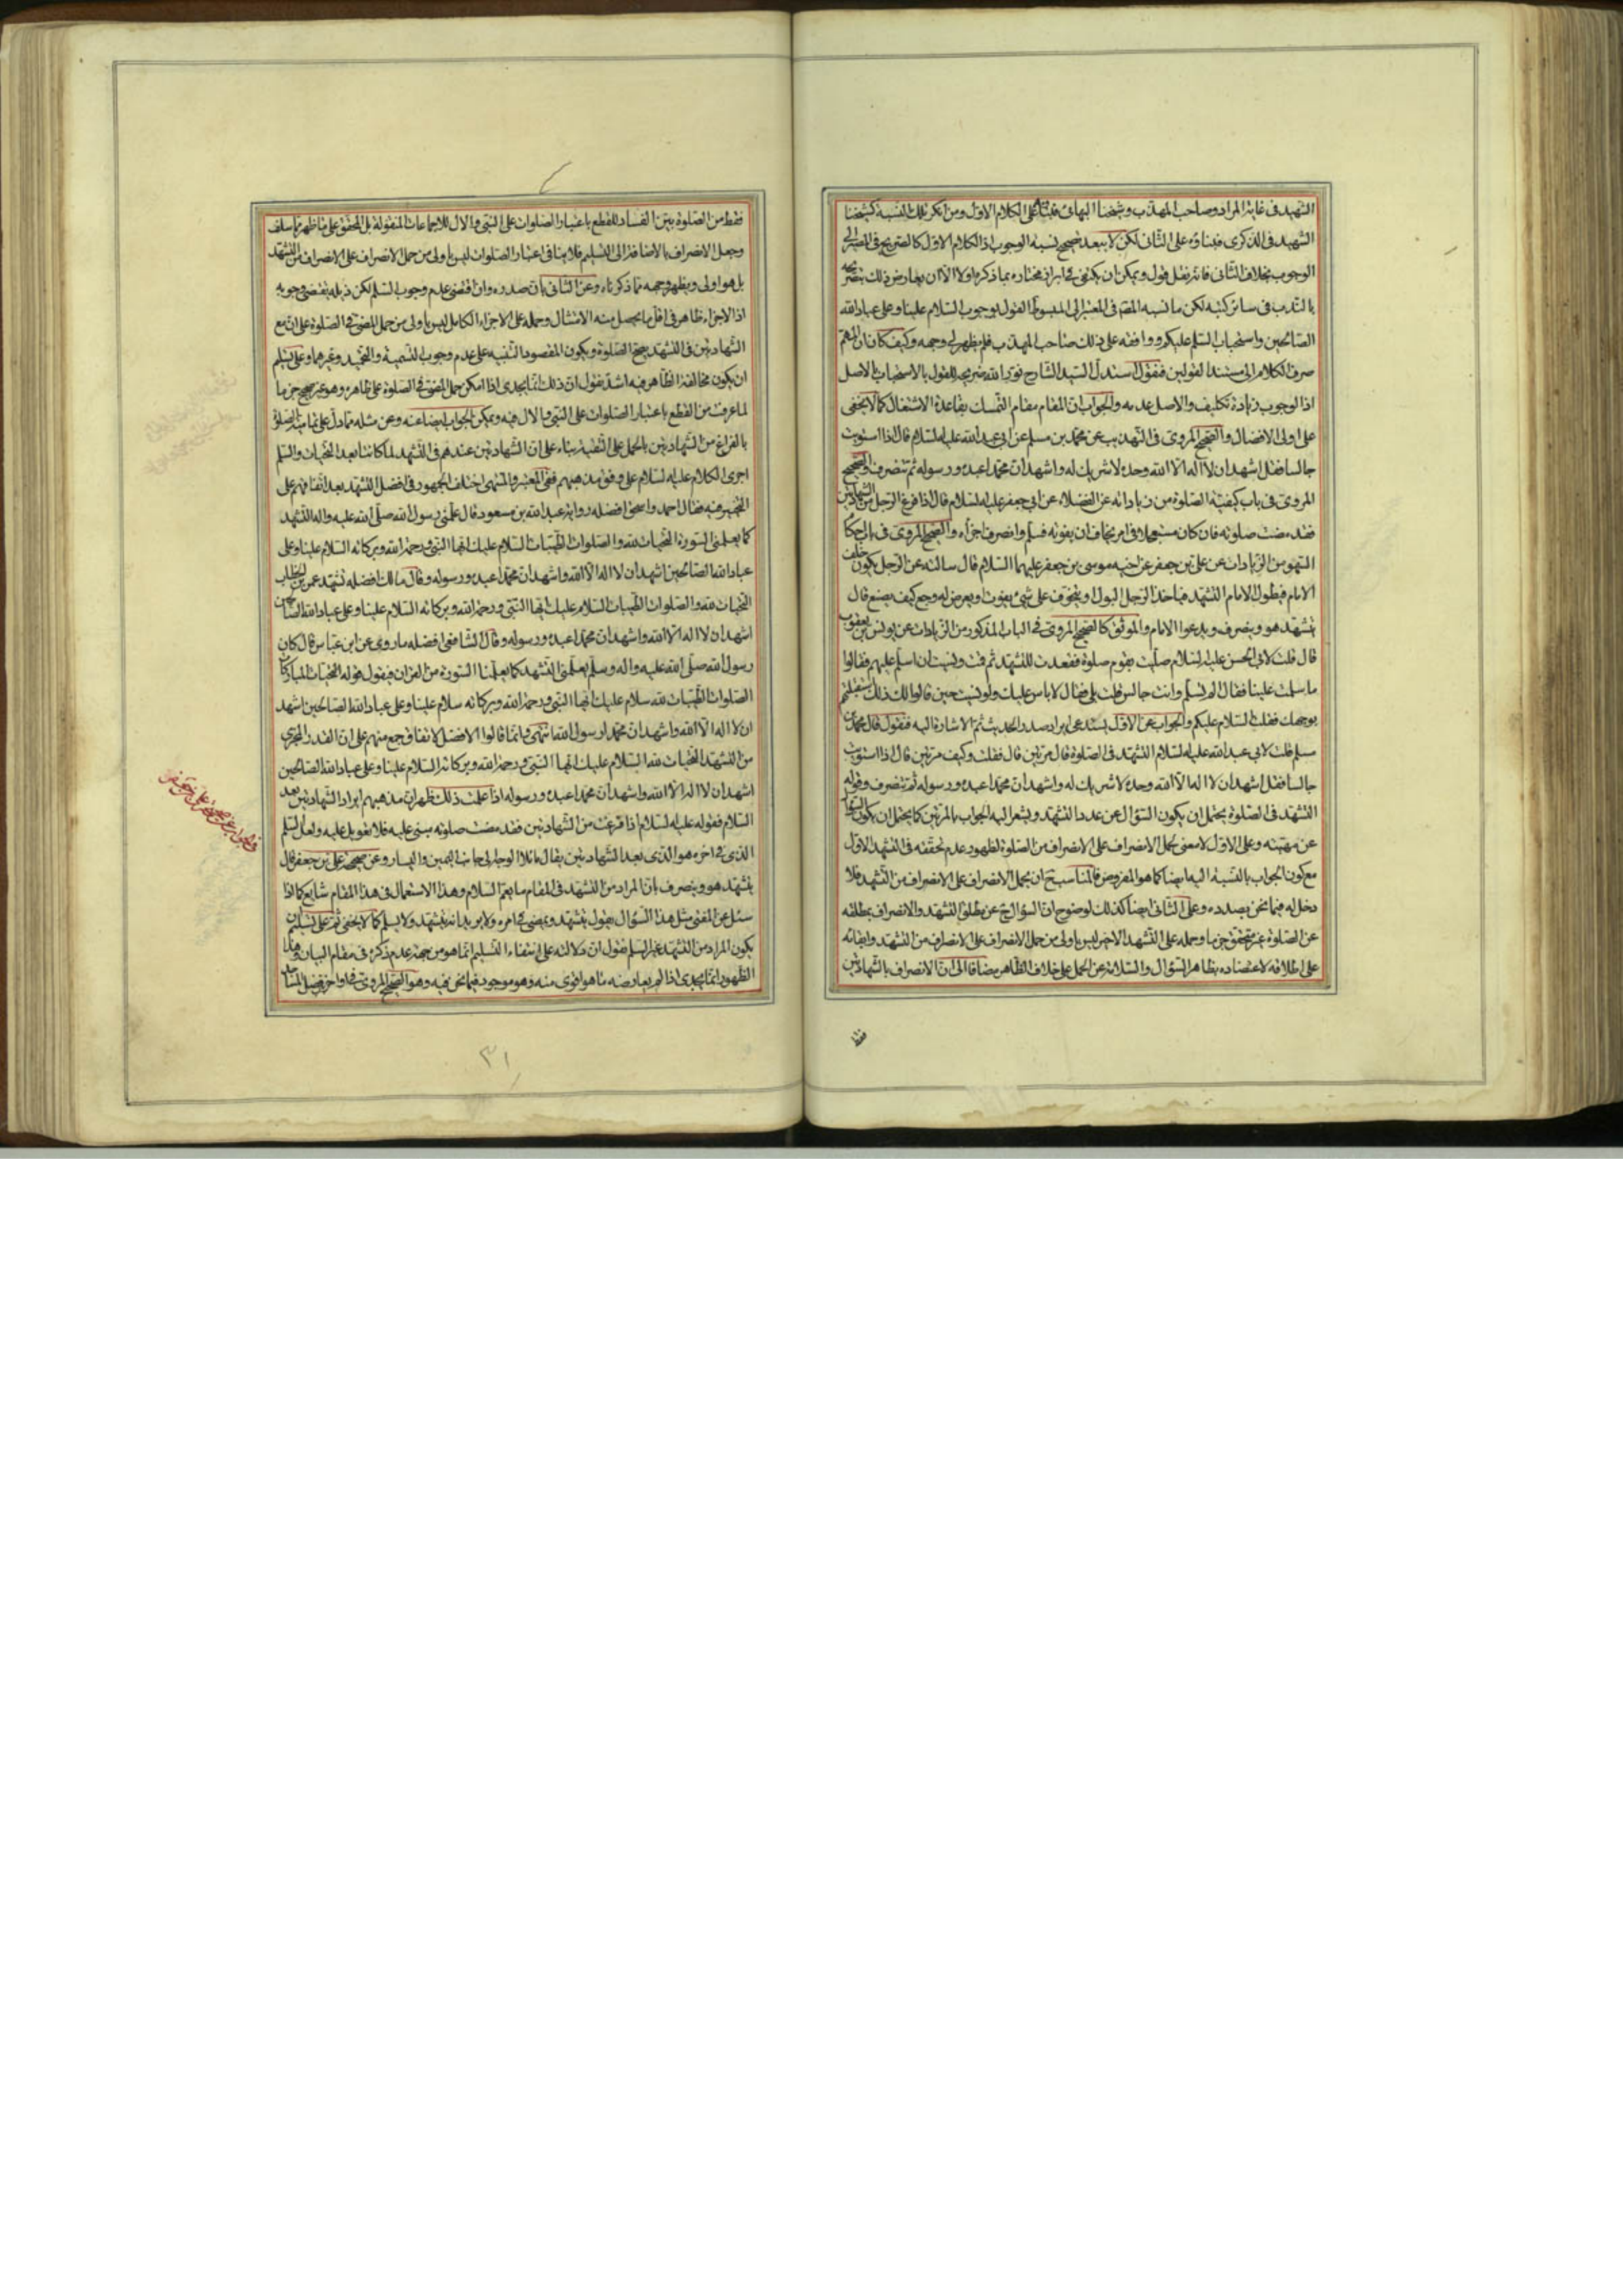 الشهيد فى غاية المراد وصاحب المهذب وشيخنا البهائى فبناء على الكلام الاول ومن انكر تلك النسبة كشيخنا
الشهيد فى الذكرى فبناؤه على الثانى لكن لا يبعد تصحيح نسبة الوجوب اذ الكلام الاول كالصريح فى المصير الى
الوجوب بخلاف الثانى فانه نقل قول ويمكن ان يكتفى فى ابراز مختاره بما ذكره اولا الا ان يعارض ذلك بتصريحه
بالندب فى سائر كتبه لكن ما نسبه المصنف فى المعتبر الى المبسوط القول بوجوب السلام علينا وعلى عباد الله
الصالحين واستحباب السلم عليكم ووافقه على ذلك صاحب المهذب فلم يظهر لى وجهه وكيف كان فالمهم
صرف الكلام الى مستند القولين فنقول استدل السيد الشارح نور الله ضريحه للقول بالاستحباب بالاصل
اذ الوجوب زيادة تكليف والاصل عدمه والجواب ان المقام مقام التمسك بقاعدة الاشتغال كما لا يخفى
على اولى الافضال والصحيح المروى فى التهذيب عن محمد بن مسلم عن ابى عبد الله عليه السلام قال اذا استويت
جالسا فقل اشهد ان لا اله الا الله وحده لا شريك له واشهد ان محمدا عبده ورسوله ثم تنصرف والصحيح
المروى فى باب كيفية الصلوة من زياداته عن الفضلاء عن ابى جعفر عليه السلام قال اذا فرغ الرجل من الشهادتين
فقد مضت صلوته فان كان مستعجلا فى امر يخاف ان يفوته فسلم وانصرف اجزأه والصحيح المروى فى باب احكام
السهو من الزيادات عن على بن جعفر عن اخيه موسى بن جعفر عليهما السلام قال سالته عن الرجل يكون خلف
الامام فيطول الامام التشهد فياخذ الرجل البول او يتخوف على شئ يفوت او يعرض له وجع كيف يصنع قال
يتشهد هو وينصرف ويدعو الامام والموثق كالصحيح المروى فى الباب المذكور من الزيادات عن يونس بن يعقوب
قال قلت لابى الحسن عليه السلام صليت بقوم صلوة فقعدت للتشهد ثم قمت ونسيت ان اسلم عليهم فقالوا
ما سلمت علينا فقال الم تسلم وانت جالس قلت بلى فقال لا باس عليك ولو نسيت حين قالوا لك ذلك استقبلتهم
بوجهك فقلت السلام عليكم والجواب عن الاول يستدعى ايراد صدر الحديث ثم الاشارة اليه فنقول قال محمد بن
مسلم قلت لابى عبد الله عليه السلام التشهد فى الصلوة قال مرتين قال فقلت وكيف مرتين قال اذا استويت
جالسا فقل اشهد ان لا اله الا الله وحده لا شريك له واشهد ان محمدا عبده ورسوله ثم تنصرف وقوله
التشهد فى الصلوة يحتمل ان يكون السؤال عن عدد التشهد ويشعر اليه الجواب بالمرتين كما يحتمل ان يكون السؤال
عن مهيته وعلى الاول لا معنى لحمل الانصراف على الانصراف من الصلوة لظهور عدم تحققه فى التشهد الاول
مع كون الجواب بالنسبة اليه ايضا كما هو المفروض فالمناسب ح ان يحمل الانصراف على الانصراف من التشهد فلا
دخل له فيما نحن بصدده وعلى الثانى ايضا كذلك لوضوح ان السؤال ح عن مطلق التشهد والانصراف بمطلقه
عن الصلوة غير متحقق جزما وحمله على التشهد الاخير ليس باولى من حمل الانصراف على الانصراف من التشهد وابقائه
على اطلاقه لاعتضاده بظاهر السؤال والسلامة عن الحمل على خلاف الظاهر مضافا الى ان الانصراف بالشهادتين
فقط
فقط من الصلوة بيّن الفساد للقطع باعتبار الصلوات على النبى والال للاجماعات المنقولة بل المحقق على ما ظهر مما سلف
وجعل الانصراف بالاضافة الى التسليم فلا ينافى اعتبار الصلوات ليس باولى من حمل الانصراف على الانصراف من التشهد
بل هو اولى ويظهر وجهه مما ذكرناه وعن الثانى بان صدره وان اقتضى عدم وجوب السلم لكن ذيله يقتضى وجوبه
اذ الاجزاء ظاهر فى اقل ما يحصل منه الامتثال وحمله على الاجزاء الكامل ليس باولى من حمل المضى فى الصلوة على ان مع
الشهادتين فى التشهد يصح الصلوة ويكون المقصود التنبيه على عدم وجوب التسمية والتحميد وغيرهما وعلى تسليم
ان يكون مخالفة الظاهر فيه اشد نقول ان ذلك انما يجدى اذا امكن حمل المضى فى الصلوة على ظاهره وهو غير صحيح جزما
لما عرفت من القطع باعتبار الصلوات على النبى والال فيه ويمكن الجواب ايضا عنه وعن مثله مما دل على تمامية الصلوة
بالفراغ من الشهادتين بالحمل على التقية بناء على ان الشهادتين عندهم فى التشهد لما كانتا بعد التحيات والسلم
اجرى الكلام عليه السلام على وفق مذهبهم ففى المعتبر والمنتهى اختلف الجمهور فى افضل التشهد بعد اتفاقهم على
التخيير فيه فقال احمد واسحق افضله رواية عبد الله بن مسعود قال علمنى رسول الله صلى الله عليه واله التشهد
كما يعلمنى السورة التحيات لله والصلوات الطيبات السلام عليك ايها النبى ورحمة الله وبركاته السلام علينا وعلى
عباد الله الصالحين اشهد ان لا اله الا الله واشهد ان محمدا عبده ورسوله وقال مالك افضله تشهد عمر بن الخطاب
التحيات لله والصلوات الطيبات السلام عليك ايها النبى ورحمة الله وبركاته السلام علينا وعلى عباد الله الصالحين
اشهد ان لا اله الا الله واشهد ان محمدا عبده ورسوله وقال الشافعى افضله ما روى عن ابن عباس قال كان
رسول الله صلى الله عليه واله وسلم يعلمنا التشهد كما يعلمنا السورة من القران فيقول قوله التحيات المباركات
الصلوات الطيبات لله سلام عليك ايها النبى ورحمة الله وبركاته سلام علينا وعلى عباد الله الصالحين اشهد
ان لا اله الا الله واشهد ان محمدا رسول الله انتهى وانما قالوا الافضل لاتفاق جمع منهم على ان القدر المجزى
من التشهد التحيات لله السلام عليك ايها النبى ورحمة الله وبركاته السلام علينا وعلى عباد الله الصالحين
اشهد ان لا اله الا الله واشهد ان محمدا عبده ورسوله اذا علمت ذلك ظهر ان مذهبهم ايراد الشهادتين بعد
السلام فقوله عليه السلام اذا فرغت من الشهادتين فقد مضت صلوته مبنى عليه فلا تعويل عليه ولعل السلم
الذى فى اخره هو الذى بعد الشهادتين يقال مائلا الوجه الى جانب اليمين واليسار وعن صحيحة على بن جعفر قال
يتشهد هو وينصرف بان المراد من التشهد فى المقام ما يعم السلام وهذا الاستعمال فى هذا المقام شايع كما اذا
سئل عن المفتى مثل هذا السؤال يقول يتشهد ويمضى فى امره ولا يريد انه يتشهد ولا يسلم كما لا يخفى ثم على تسليم ان
يكون المراد من التشهد غير السلم نقول ان دلالته على انتفاء التسليم انما هو من جهة عدم ذكره فى مقام البيان وهذا
الظهور انما يجدى اذا لم يعارضه ما هو اقوى منه وهو موجود فيما نحن فيه وهو الصحيح المروى فى اواخر فضل المساجد
٣١